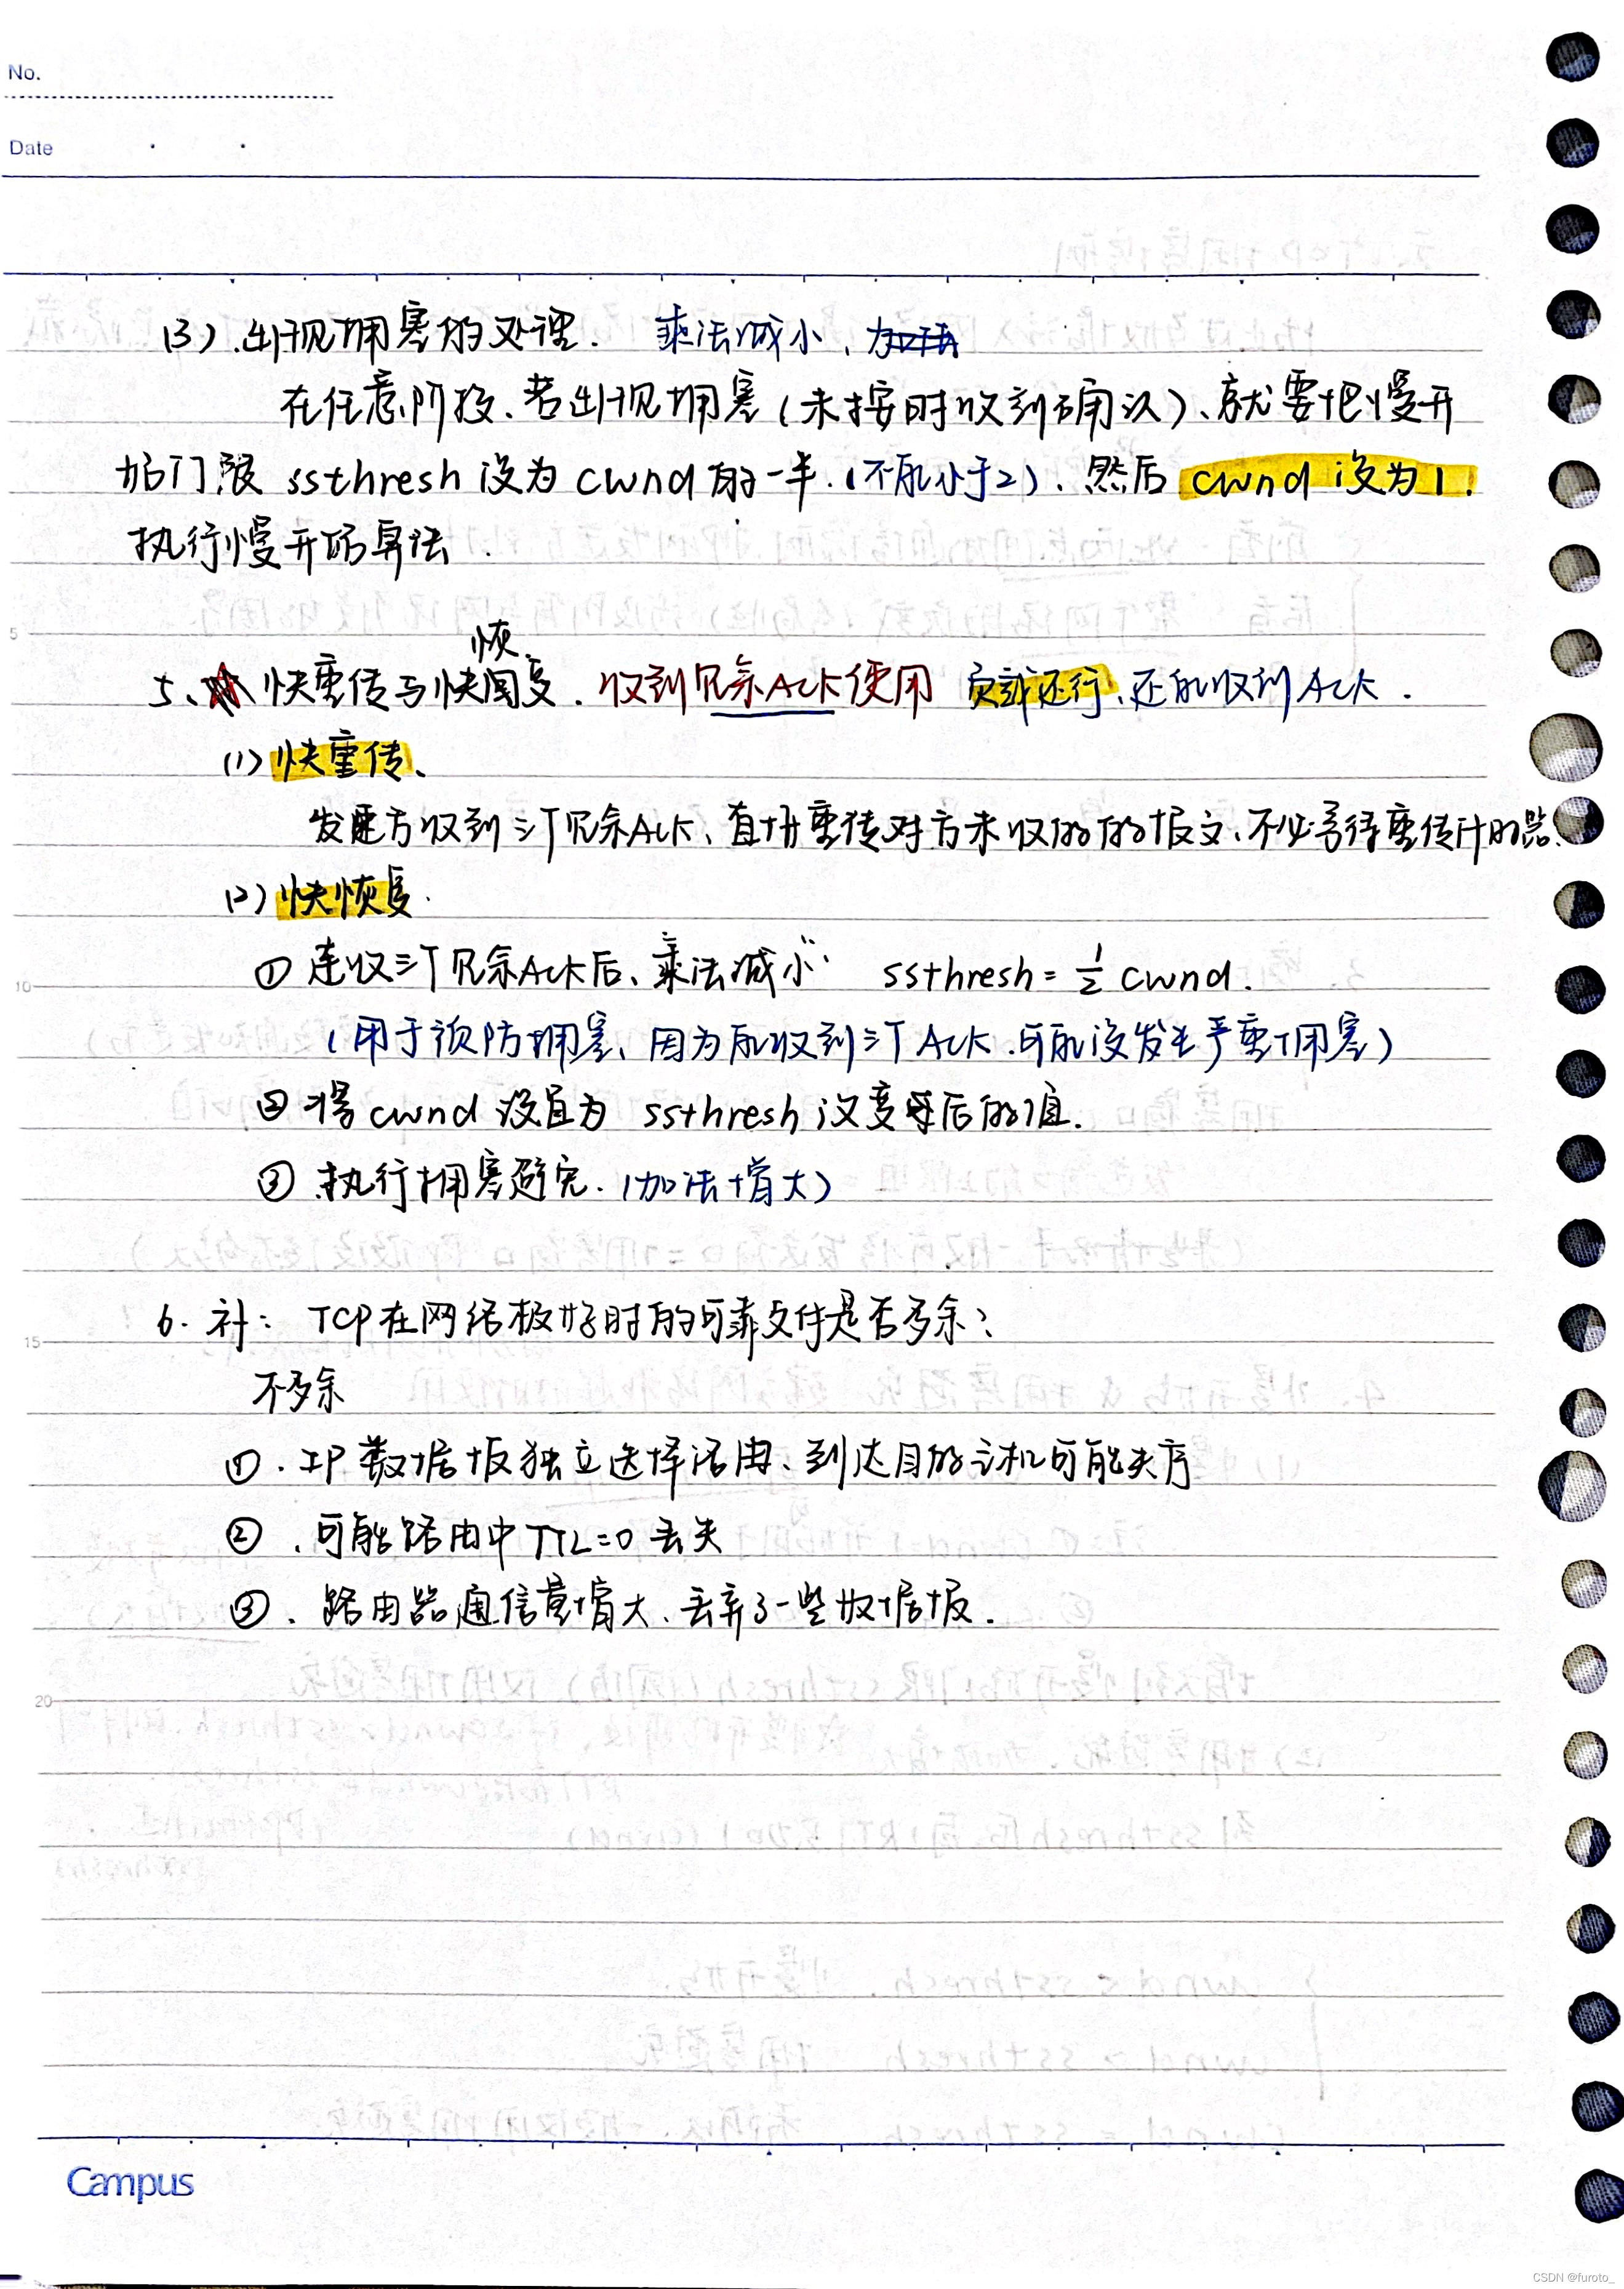 No.
Date
(3). 出现拥塞的处理. 乘法减小、
在任意阶段、若出现拥塞(未按时收到确认)、就要把慢开
始门限 ssthresh 设为 cwnd 的一半.(不能小于2)、然后 cwnd 设为1.
执行慢开始算法.
恢
5、快重传与快复. 收到冗余ACK使用 负载还行、还能收到ACK.
(1) 快重传、
发送方收到三个冗余ACK、直接重传对方未收到的报文、不必等待重传计时器
(2) 快恢复.
① 连收三个冗余ACK后、乘法减小 ssthresh = 1/2 cwnd.
(用于预防拥塞、因为能收到三个ACK.可能没发生严重拥塞)
② 将 cwnd 设置为 ssthresh 改变后的值.
③ 执行拥塞避免.(加法增大)
6. 补: TCP在网络极好时的可靠交付是否多余?
不多余
①. IP数据报独立选择路由、到达目的主机可能失序
②. 可能路由中TTL=0丢失
③. 路由器通信量增大、丢弃了一些数据报.
5
10
15
20
Campus
CSDN @furoto_